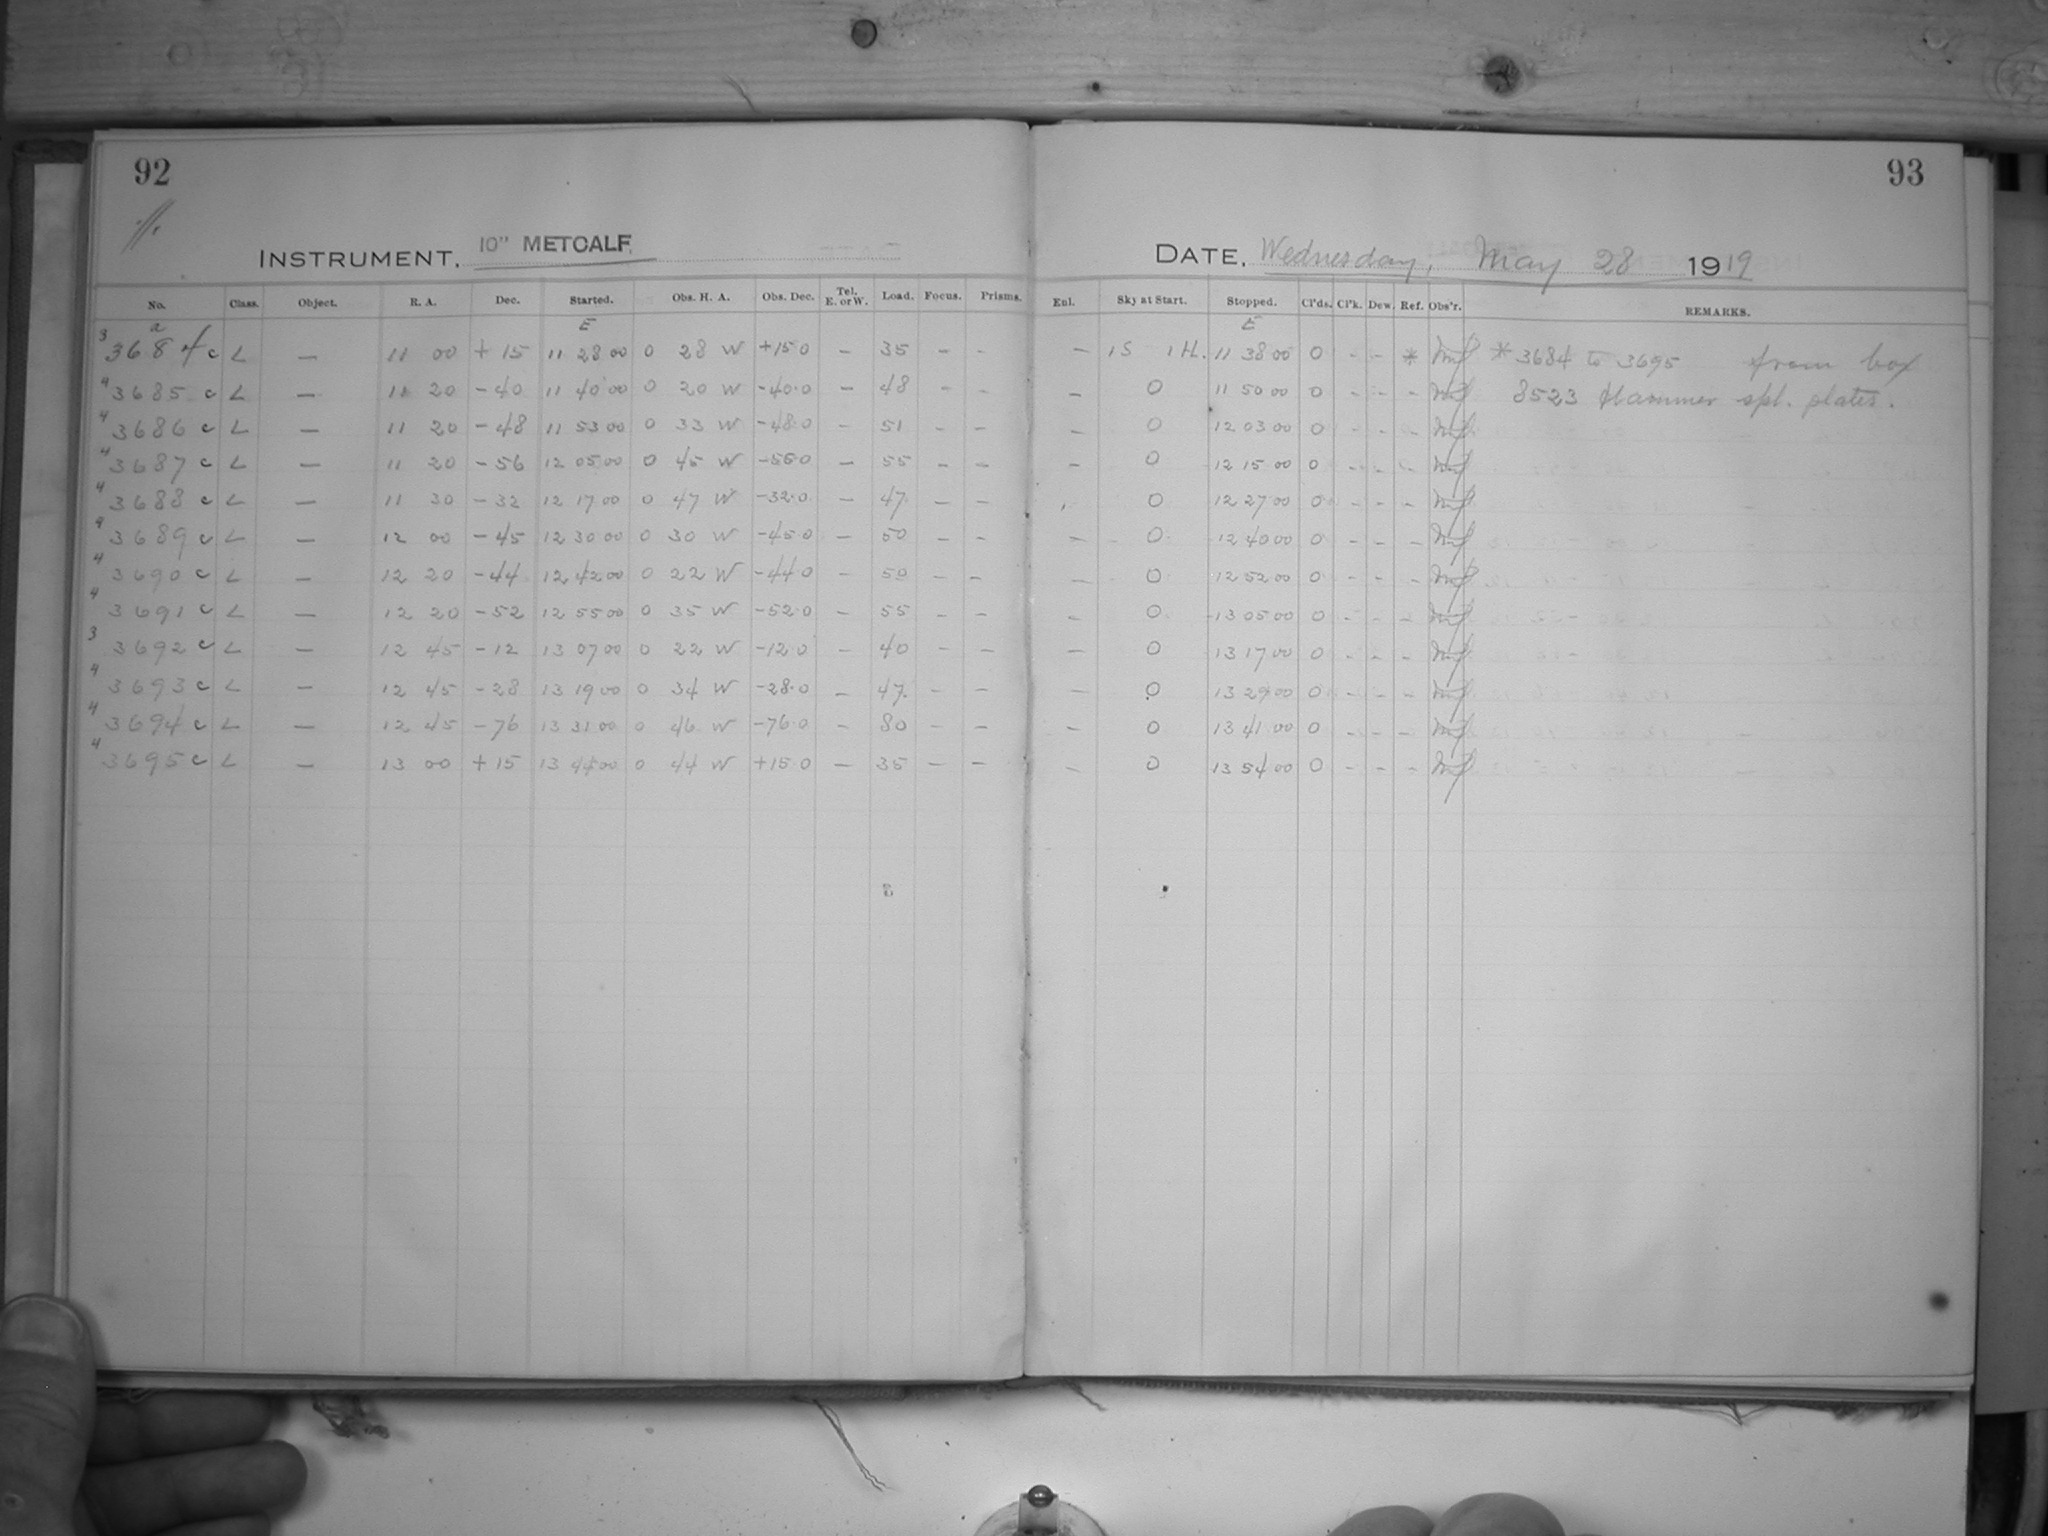 92
INSTRUMENT. 10" METCALF.
No. Class. Object. R. A. Dec. Started. Obs. H. A. Obs. Dec. Tel. E. or W. Load. Focus. Prisms.
a E
3 3684 c L — 11 00 + 15 11 28 00 0 28 W +15.0 — 35 - -
4 3685 c L — 11 20 - 40 11 40 00 0 20 W -40.0 — 48 - -
4 3686 c L — 11 20 - 48 11 53 00 0 33 W -48.0 - 51 - -
4 3687 c L — 11 20 - 56 12 05 00 0 45 W -56.0 — 55 - -
4 3688 c L — 11 30 - 32 12 17 00 0 47 W -32.0 — 47 - -
4 3689 c L — 12 00 - 45 12 30 00 0 30 W -45.0 — 50 - -
4 3690 c L — 12 20 - 44 12 42 00 0 22 W -44.0 — 50 - -
4 3691 c L — 12 20 - 52 12 55 00 0 35 W -52.0 — 55 - -
3 3692 c L — 12 45 - 12 13 07 00 0 22 W -12.0 — 40 - -
4 3693 c L — 12 45 - 28 13 19 00 0 34 W -28.0 - 47 - -
4 3694 c L — 12 45 - 76 13 31 00 0 46 W -76.0 — 80 - -
4 3695 c L — 13 00 + 15 13 44 00 0 44 W +15.0 — 35 - -
93
DATE. Wednesday, May 28 1919
Enl. Sky at Start. Stopped. Cl'ds. Cl'k. Dew. Ref. Obs'r. REMARKS.
E
— 1S 1H. 11 38 00 0 - - * * 3684 to 3695 from box
— 0 11 50 00 0 - - - 8523 Hammer spl. plates.
— 0 12 03 00 0 - - -
— 0 12 15 00 0 - - -
0 12 27 00 0 - - -
— 0 12 40 00 0 - - -
— 0 12 52 00 0 - - -
— 0 13 05 00 0 - - -
— 0 13 17 00 0 - - -
— 0 13 29 00 0 - - -
— 0 13 41 00 0 - - -
— 0 13 54 00 0 - - -